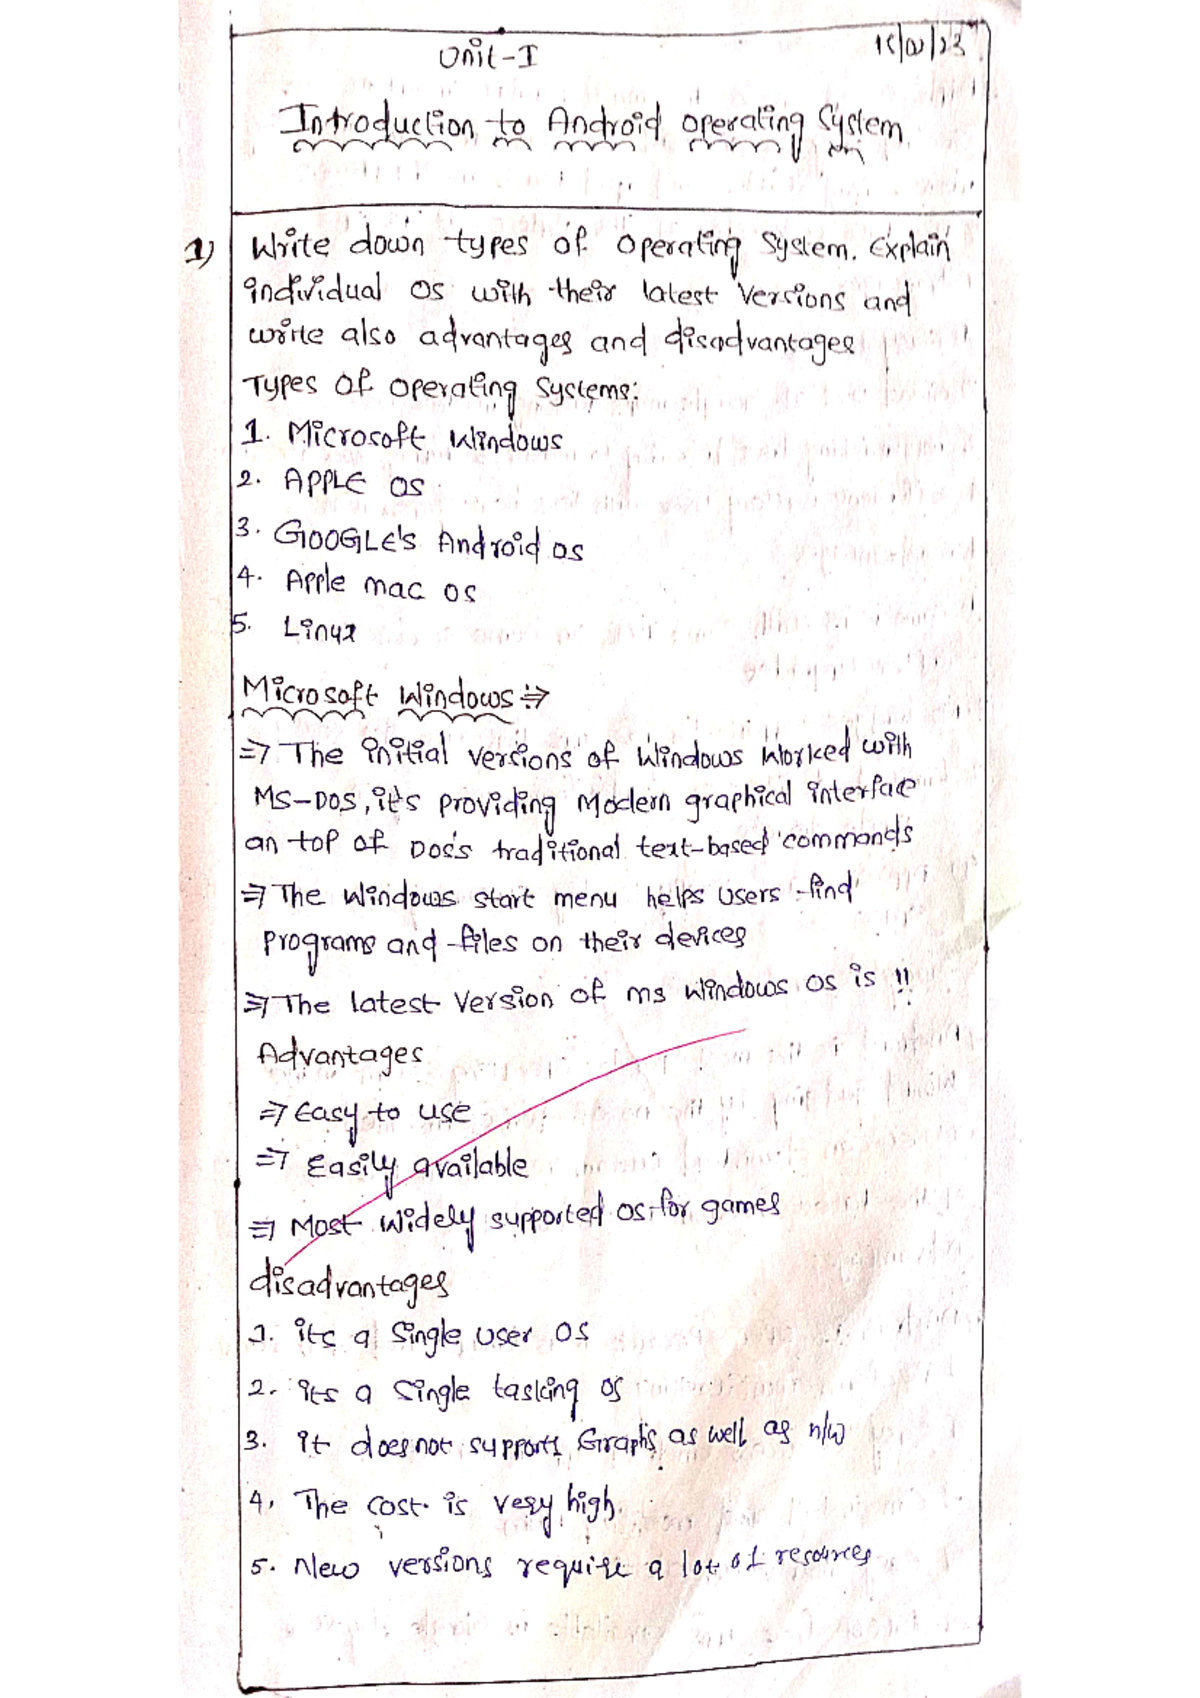 Unit-I
Introduction to Android operating System
1) Write down types of operating System. Explain
individual os with their latest versions and
write also advantages and disadvantages
Types of operating systems:
1. Microsoft Windows
2. APPLE OS
3. GOOGLE's Android os
4. Apple mac os
5. Linux
Microsoft Windows ⇒
⇒ The initial versions of Windows worked with
MS-DOS, it's providing Modern graphical interface
an top of DOS's traditional text-based commands
⇒ The Windows start menu helps users find
programs and files on their devices
⇒ The latest version of ms windows os is 11
Advantages
⇒ Easy to use
⇒ Easily available
⇒ Most widely supported os for games
disadvantages
1. its a single user OS
2. its a single tasking os
3. it does not supports Graphs as well as n/w
4. The cost is very high.
5. New versions require a lot of resources